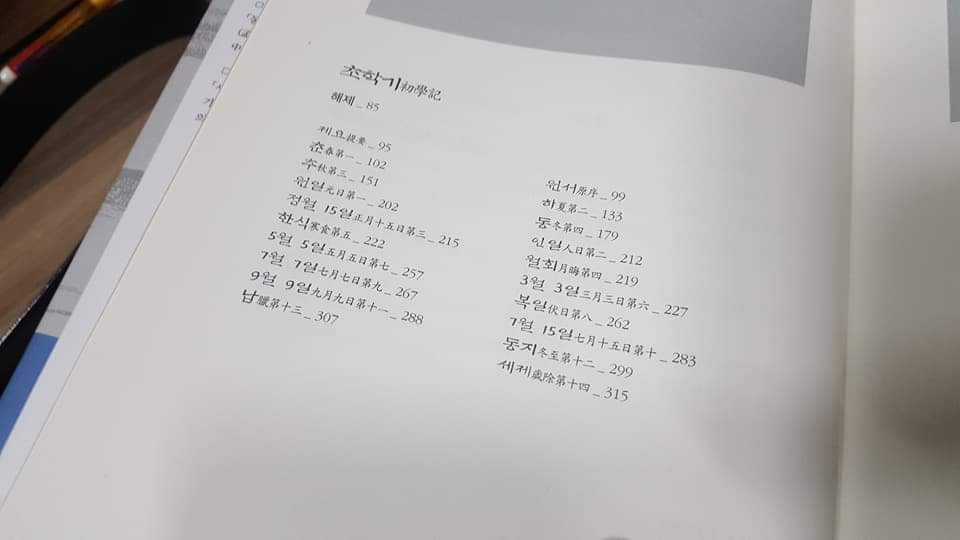 초학기初學記
해제 _ 85
제요提要 _ 95
원서原序 _ 99
춘春第一 _ 102
하夏第二 _ 133
추秋第三 _ 151
동冬第四 _ 179
원일元日第一 _ 202
인일人日第二 _ 212
정월 15일正月十五日第三 _ 215
월회月晦第四 _ 219
한식寒食第五 _ 222
3월 3일三月三日第六 _ 227
5월 5일五月五日第七 _ 257
복일伏日第八 _ 262
7월 7일七月七日第九 _ 267
7월 15일七月十五日第十 _ 283
9월 9일九月九日第十一 _ 288
동지冬至第十二 _ 299
납臘第十三 _ 307
세제歲除第十四 _ 315